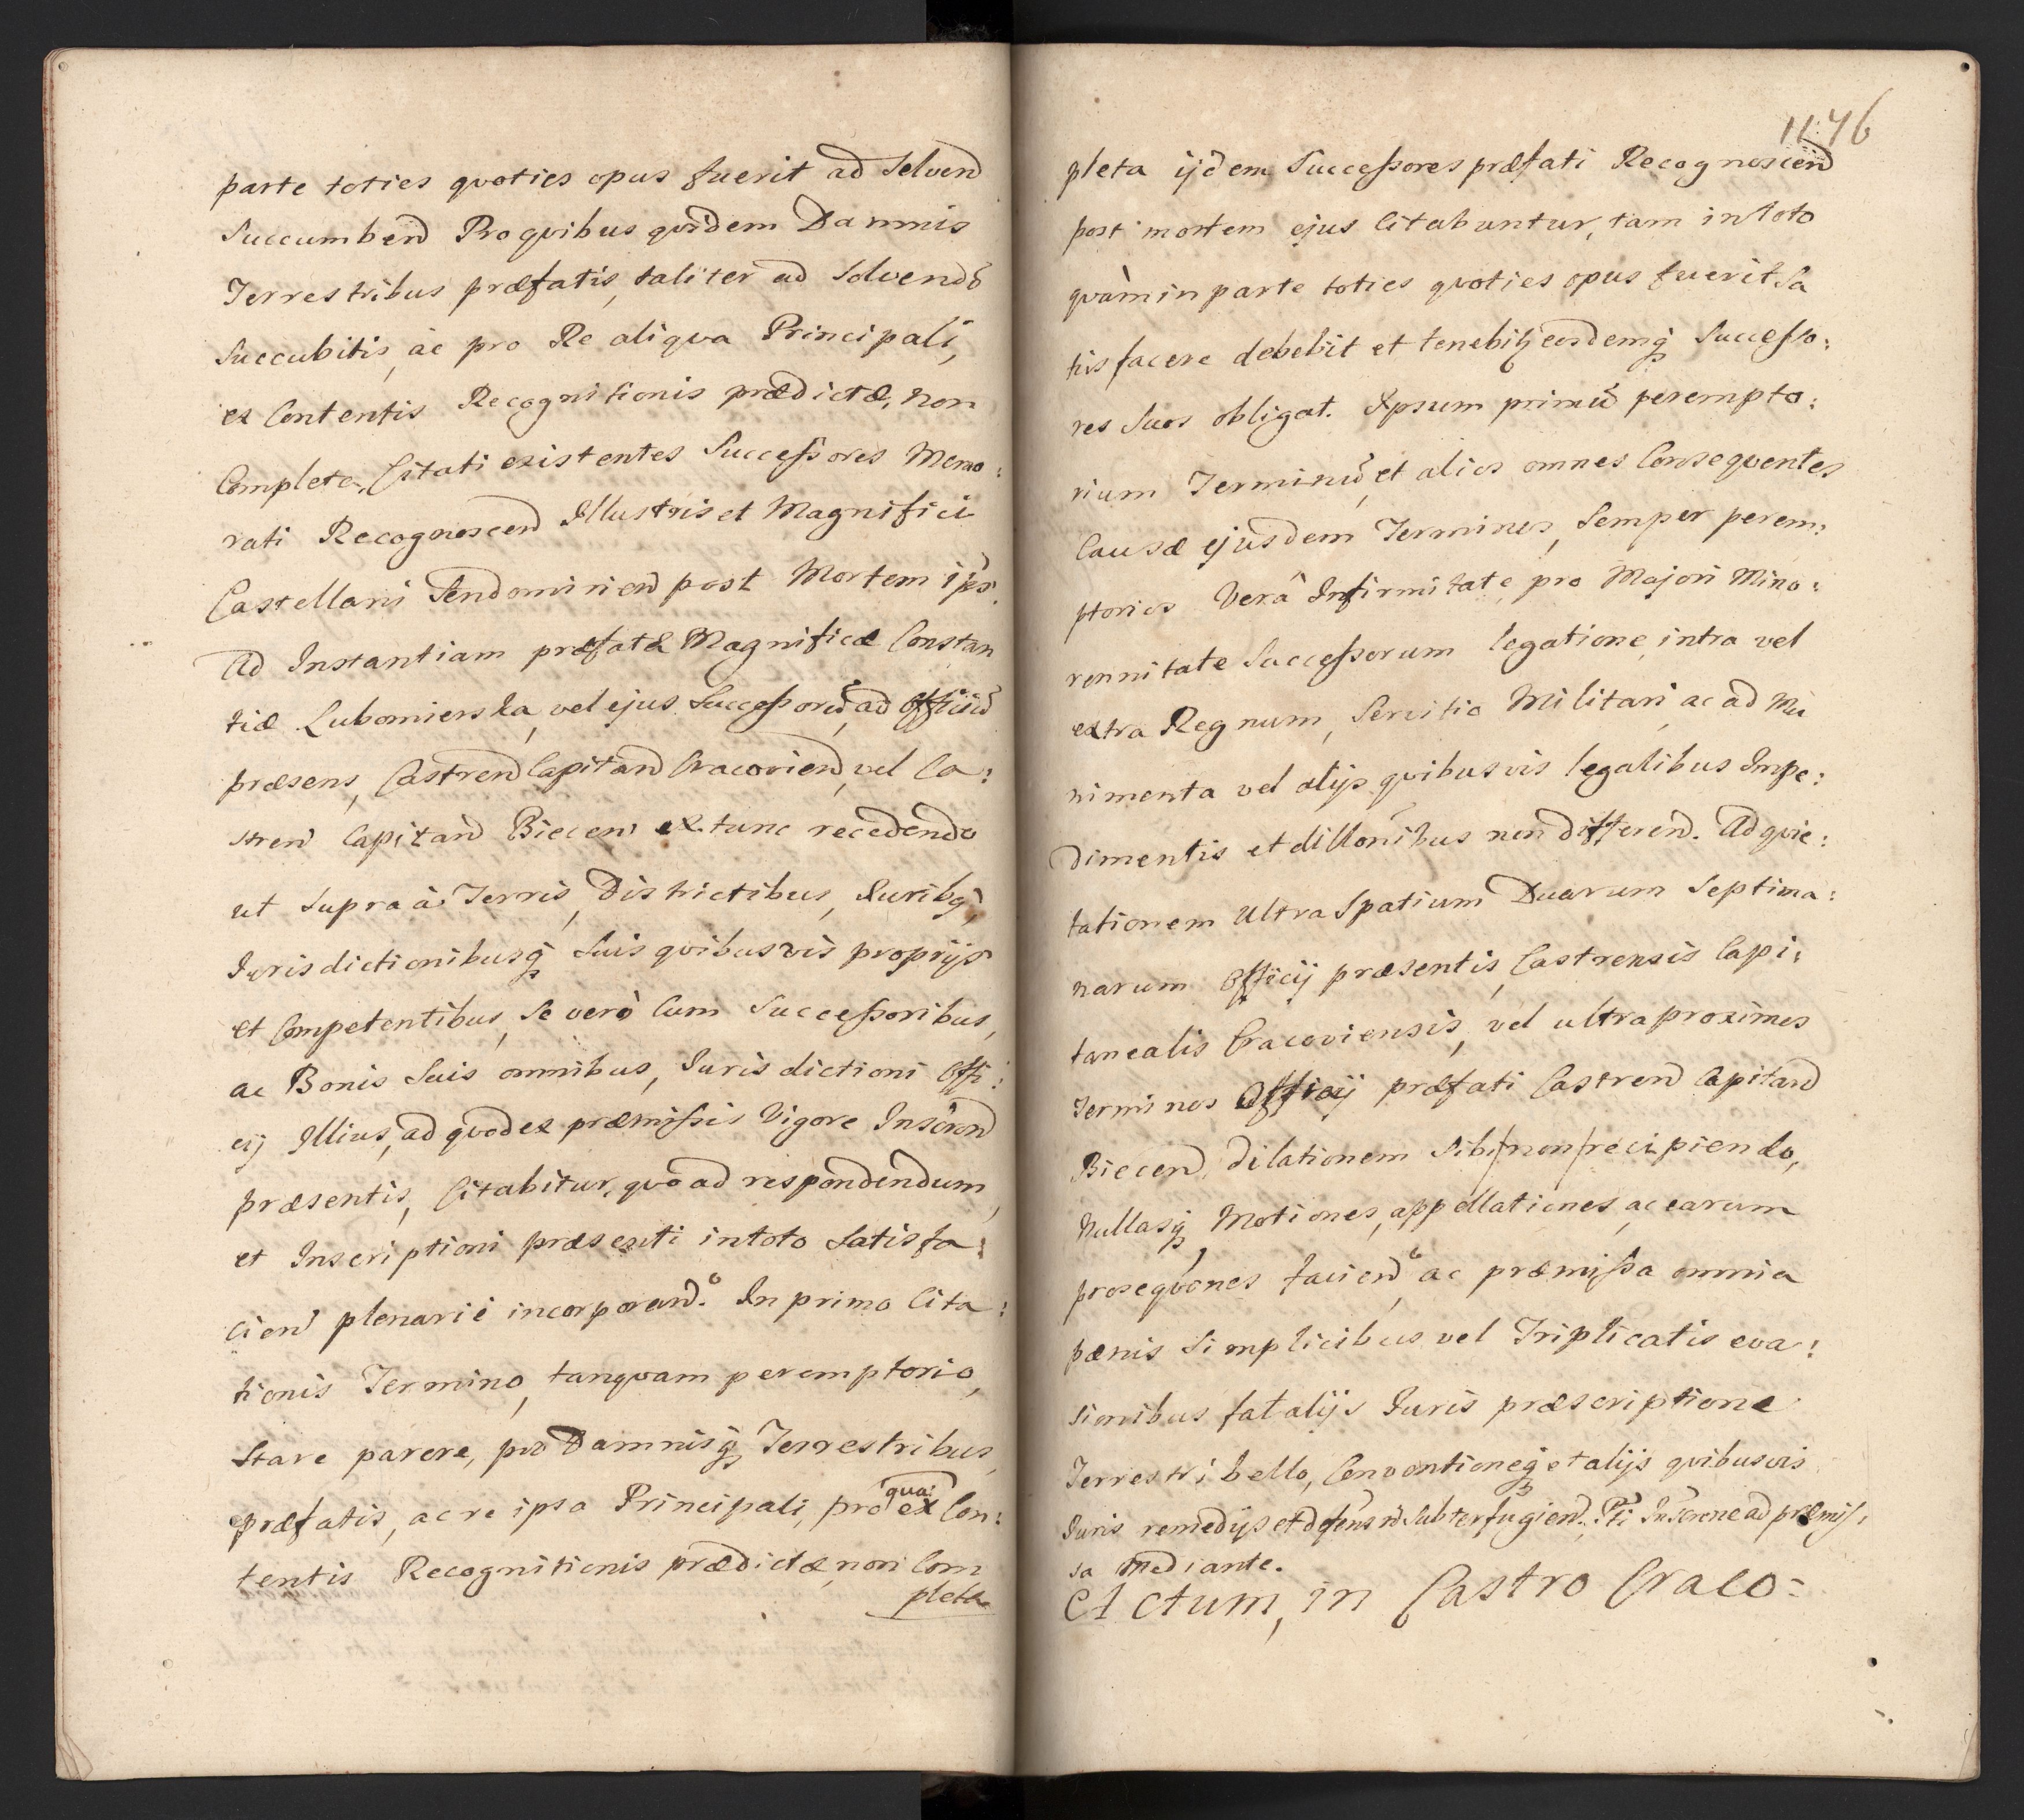 parte toties qvoties opus fuerit ad Solvend
Succumbend Pro qvibus qvidem Damnis
Terrestribus præfatis, taliter ad Solvendũ
Succubitis, ac pro Re aliqva Principali,
ex Contentis Recognitionis prædictæ, non
Completa, Citati existentes Successores Memo:
rati Recognoscen Illustris et Magnifici
Castellani Sendomirien post Mortem ips.
Ad Instantiam præfatæ Magnificæ Constan
tiæ Lubomierska, vel ejus Successorũ, ad Officiũ
præsens, Castren Capitan Cracovien, vel Ca:
stren Capitan Biecen ex tunc recedendo
ut Supra à Terris, Districtibus, Juribq,
Jurisdictionibusq Suis qvibusvis proprijs
et Competentibus, Se verò Cum Successoribus,
ac Bonis Suis omnibus, Jurisdictioni Offi:
cij Illius, ad qvod ex præmissis Vigore Inscron
præsentis, Citabitur, qvo ad respondendum,
et Inscriptioni præsenti in toto Satisfa:
cien plenariè incorporand.o In primo Cita:
tionis Termino, tanqvam peremptorio,
Stare parere, pro Damnisq Terrestribus
præfatis, ac re ipsa Principali, pro qua: ex Con:
tentis Recognitionis prædictæ, non Com
pleta
1146
pleta ijdem Successores præfati Recognoscen
post mortem ejus Citabuntur, tam in toto
qvàm in parte toties qvoties opus fuerit Sa
tisfacere debebit et tenebitz eosdemq Successo:
res Suos obligat. Ipsum primũ perempto:
rium Terminũ, et alios omnes Conseqventes
Causæ ejusdem Terminos, Semper perem:
ptorios Verâ Infirmitate, pro Majori Mino:
rennitate Successorum legatione, intra vel
extra Regnum, Servitio Militari, ac ad Mu
nimenta vel alijs qvibusvis legalibus Impe:
dimentis et dillonibus non differend. Ad qvie:
tationem Ultra Spatium Duarum Septima:
narum Officij præsentis, Castrensis Capi:
tanealis Cracoviensis, vel ultra proximos
Terminos Officij præfati Castren Capitan
Biecen, dilationem Sibi/non/recipiendo,
Nullasq Motiones, appellationes, ac earum
proseqvones faciend,o ac præmissa omnia
pænis Simplicibus vel Triplicatis eva:
sionibus fatalijs Juris præscriptione
Terrestri bello, Conventioneq et alijs qvibusvis
Juris remedijs et defens nõ Subterfugiend. Pti Inscrone ad præmis,
sa mediante.
Actum, in Castro Craco=